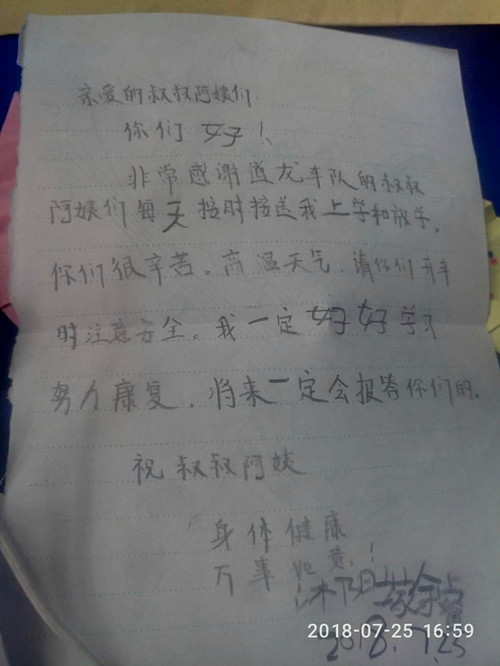 亲爱的叔叔阿姨们
你们好！
非常感谢道龙车队的叔叔
阿姨们每天按时接送我上学和放学。
你们很辛苦。高温天气，请你们开车
时注意安全。我一定好好学习
努力康复，将来一定会报答你们的。
祝叔叔阿姨
身体健康
万事如意！
2018-07-25 16:59
2018.7.25